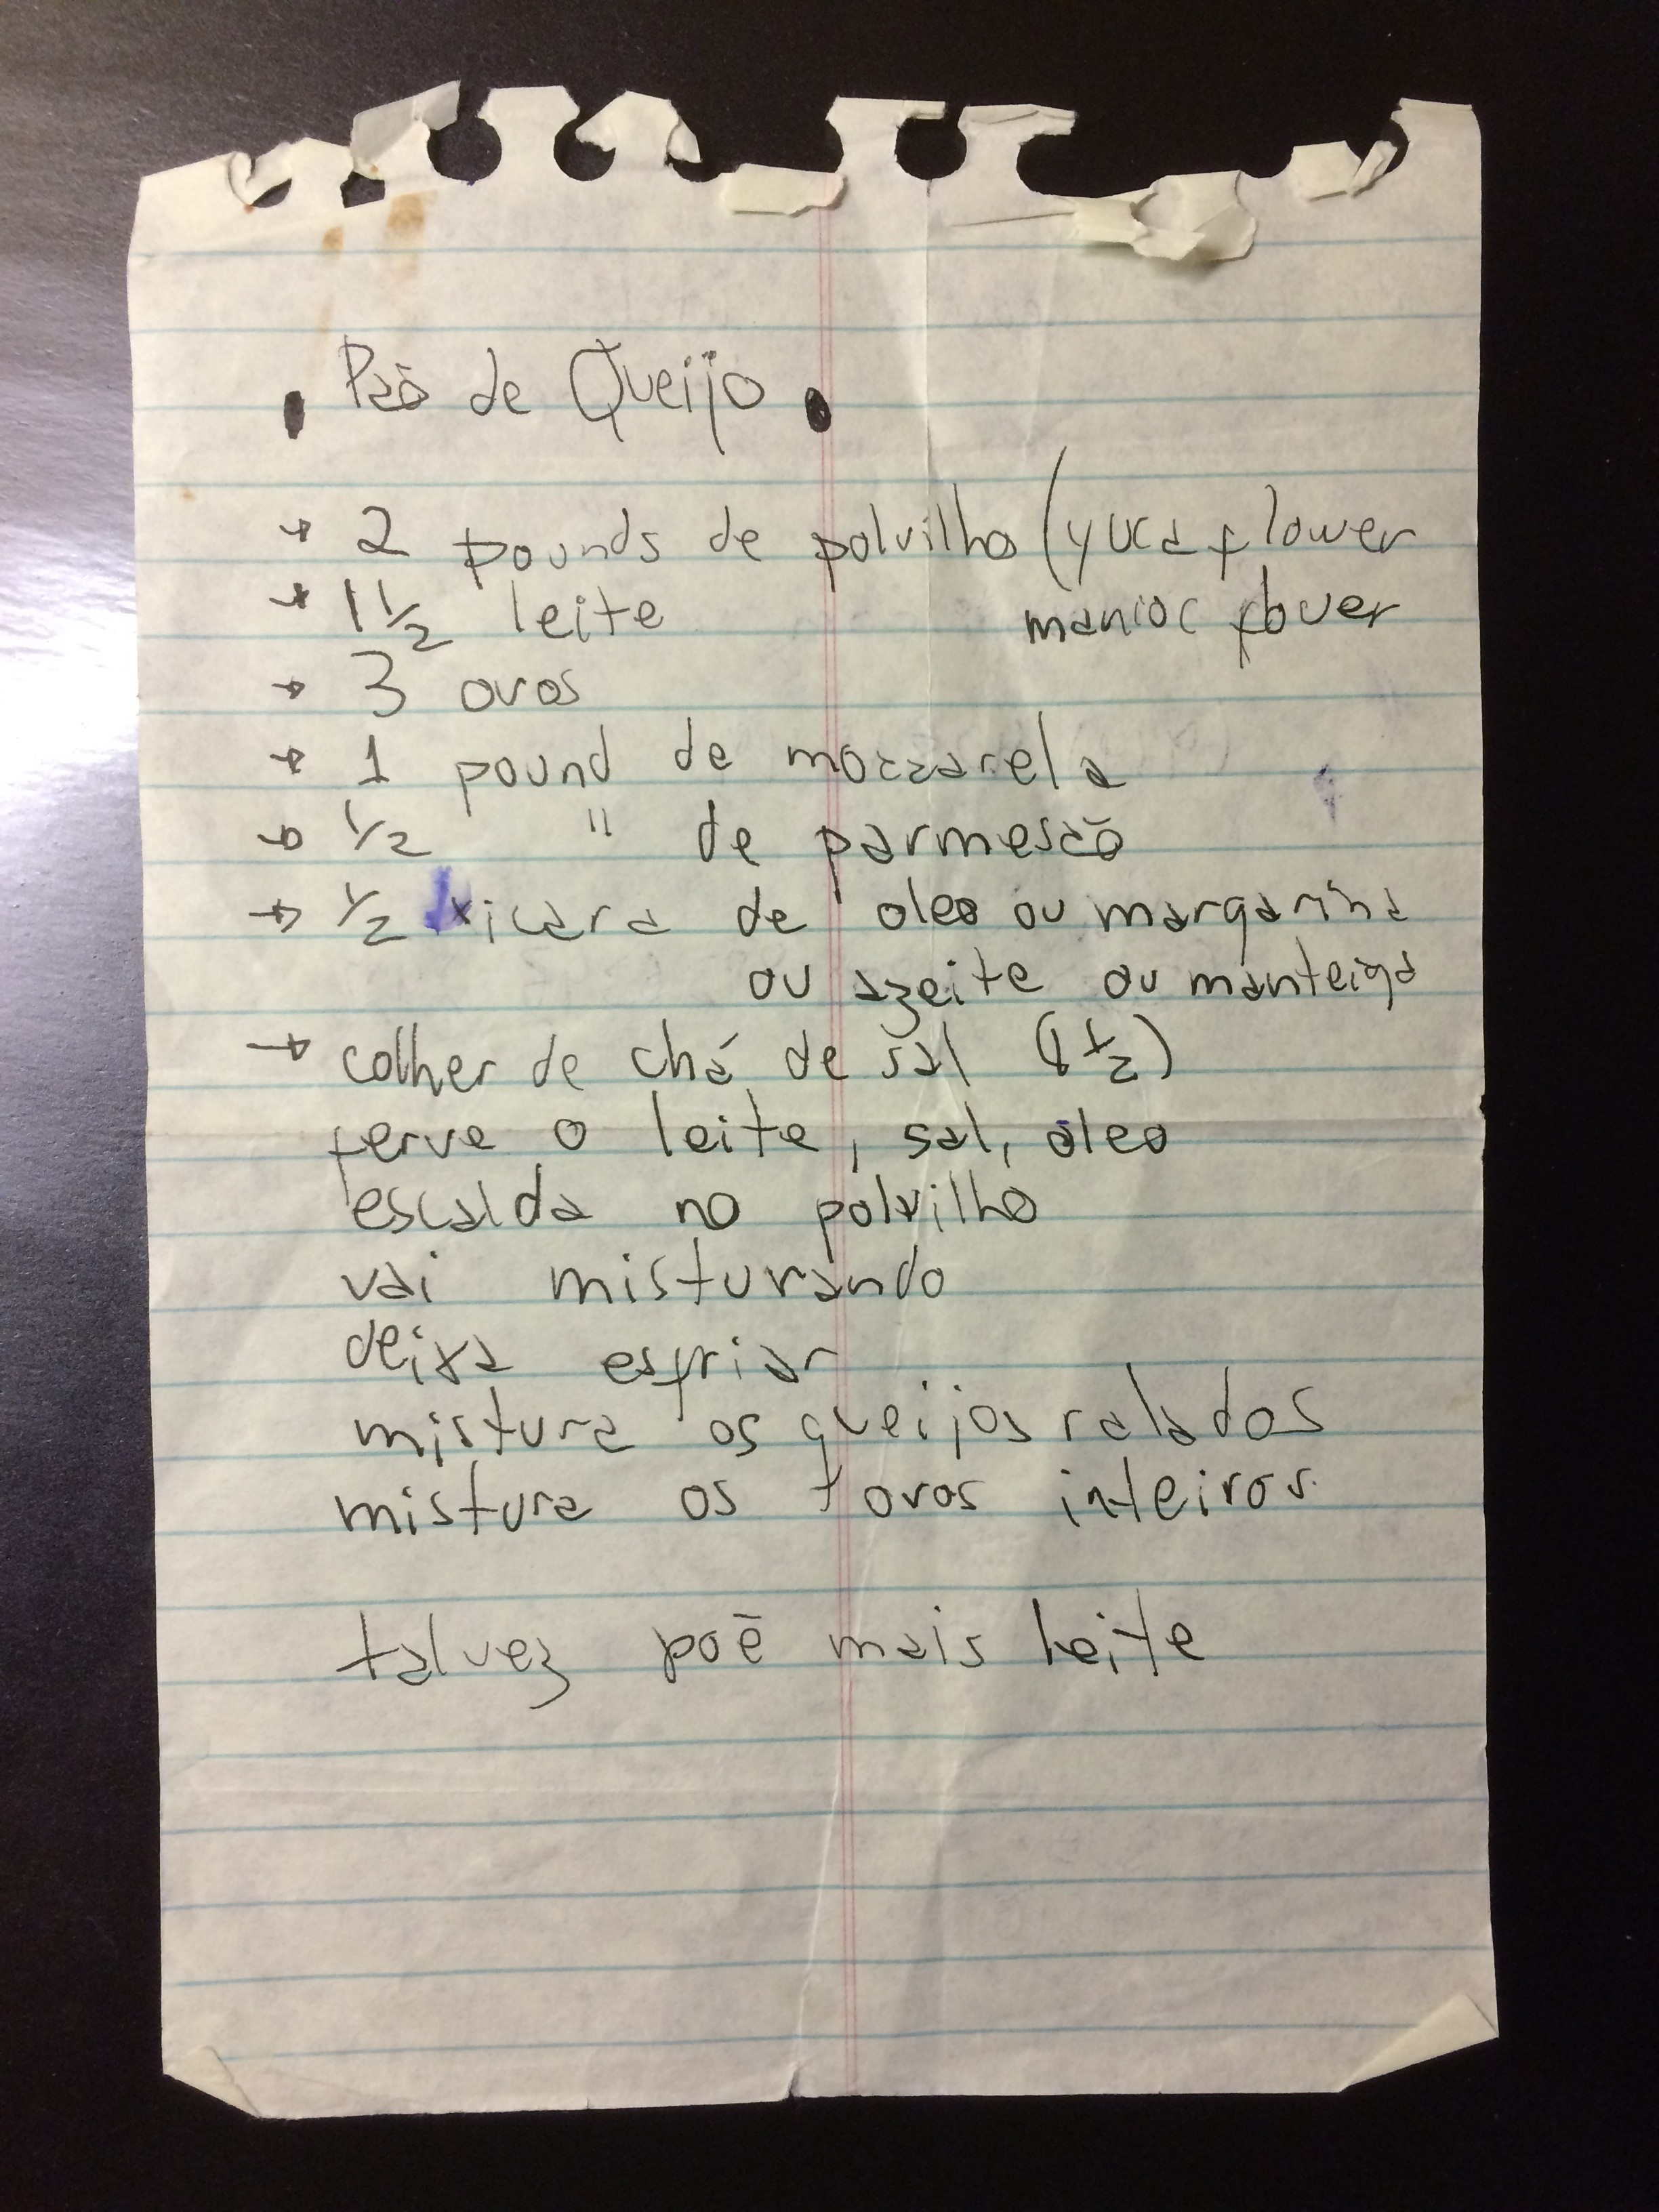 Pão de Queijo
→ 2 pounds de polvilho (yuca flower
→ 1 1/2 leite manioc flouer
→ 3 ovos
→ 1 pound de mozzarela
→ 1/2 " de parmesão
→ 1/2 xicara de oleo ou margarina
ou azeite ou manteiga
→ colher de chá de sal (1 1/2)
ferve o leite, sal, oleo
escalda no polvilho
vai misturando
deixa esfriar
mistura os queijos ralados
mistura os ovos inteiros
talvez poẽ mais leite